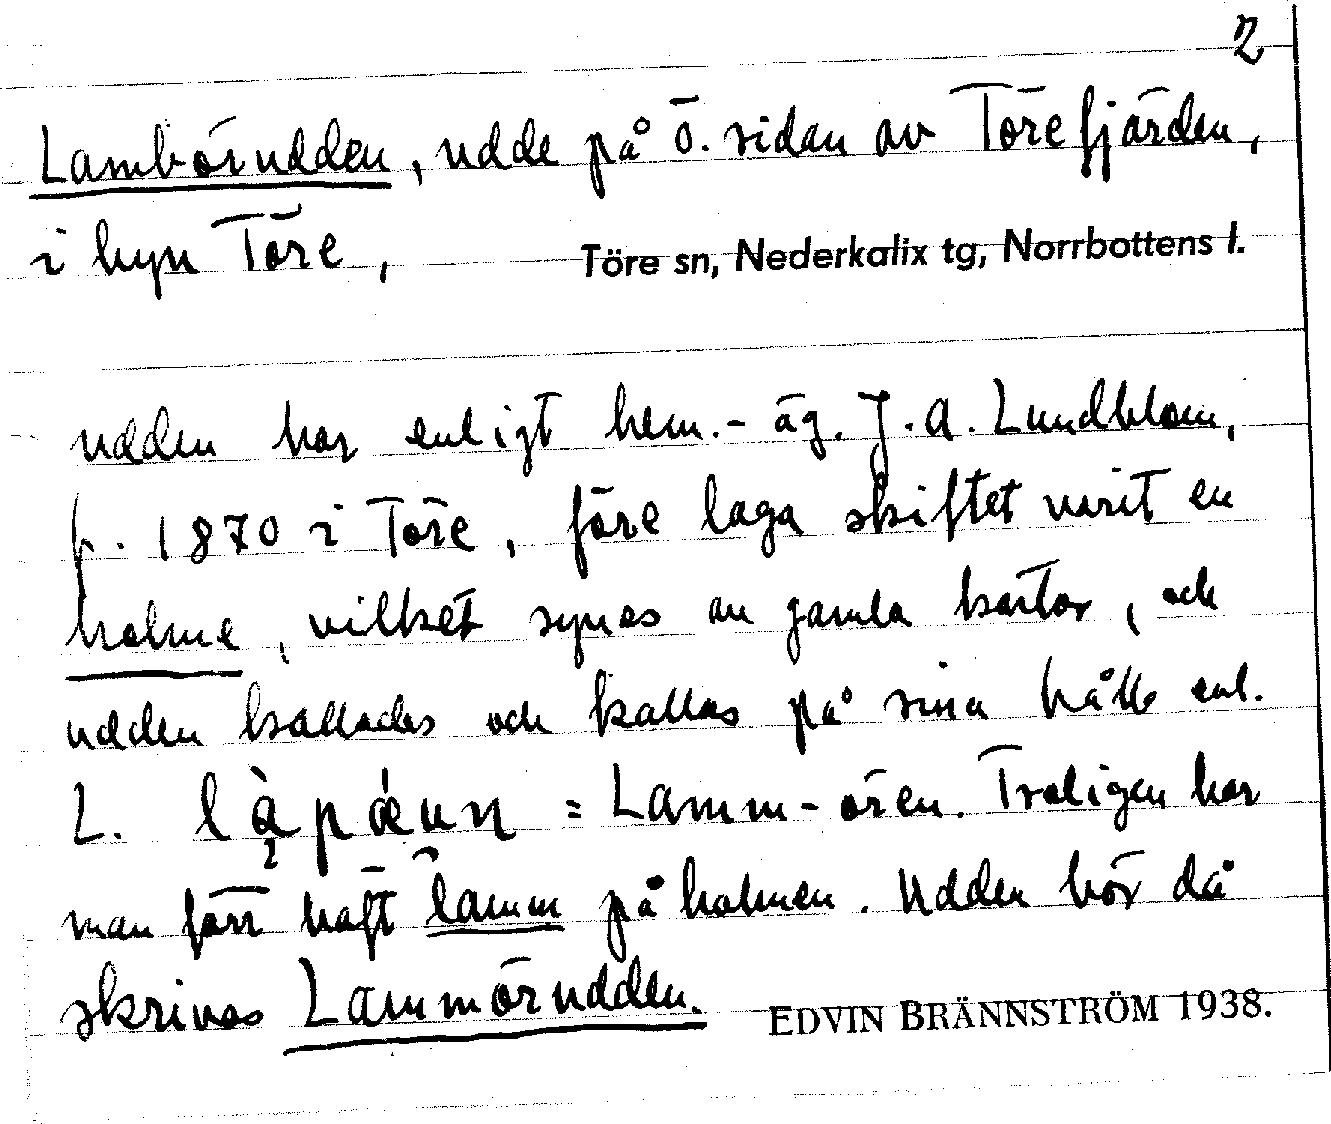 2
Lambörudden, udde på ö. sidan av Törefjärden,
i byn Töre, Töre sn, Nederkalix tg, Norrbottens l.
udden har enligt hem.-äg. J.A. Lundblom,
f. 1870 i Töre, före laga skiftet varit en
holme, vilket synes av gamla kartor, och
udden kallades och kallas på sina håll enl.
L. = Lamm-ören. Troligen har
man förr haft lamm på holmen. Udden bör då
skrivas Lammörudden. EDVIN BRÄNNSTRÖM 1938.